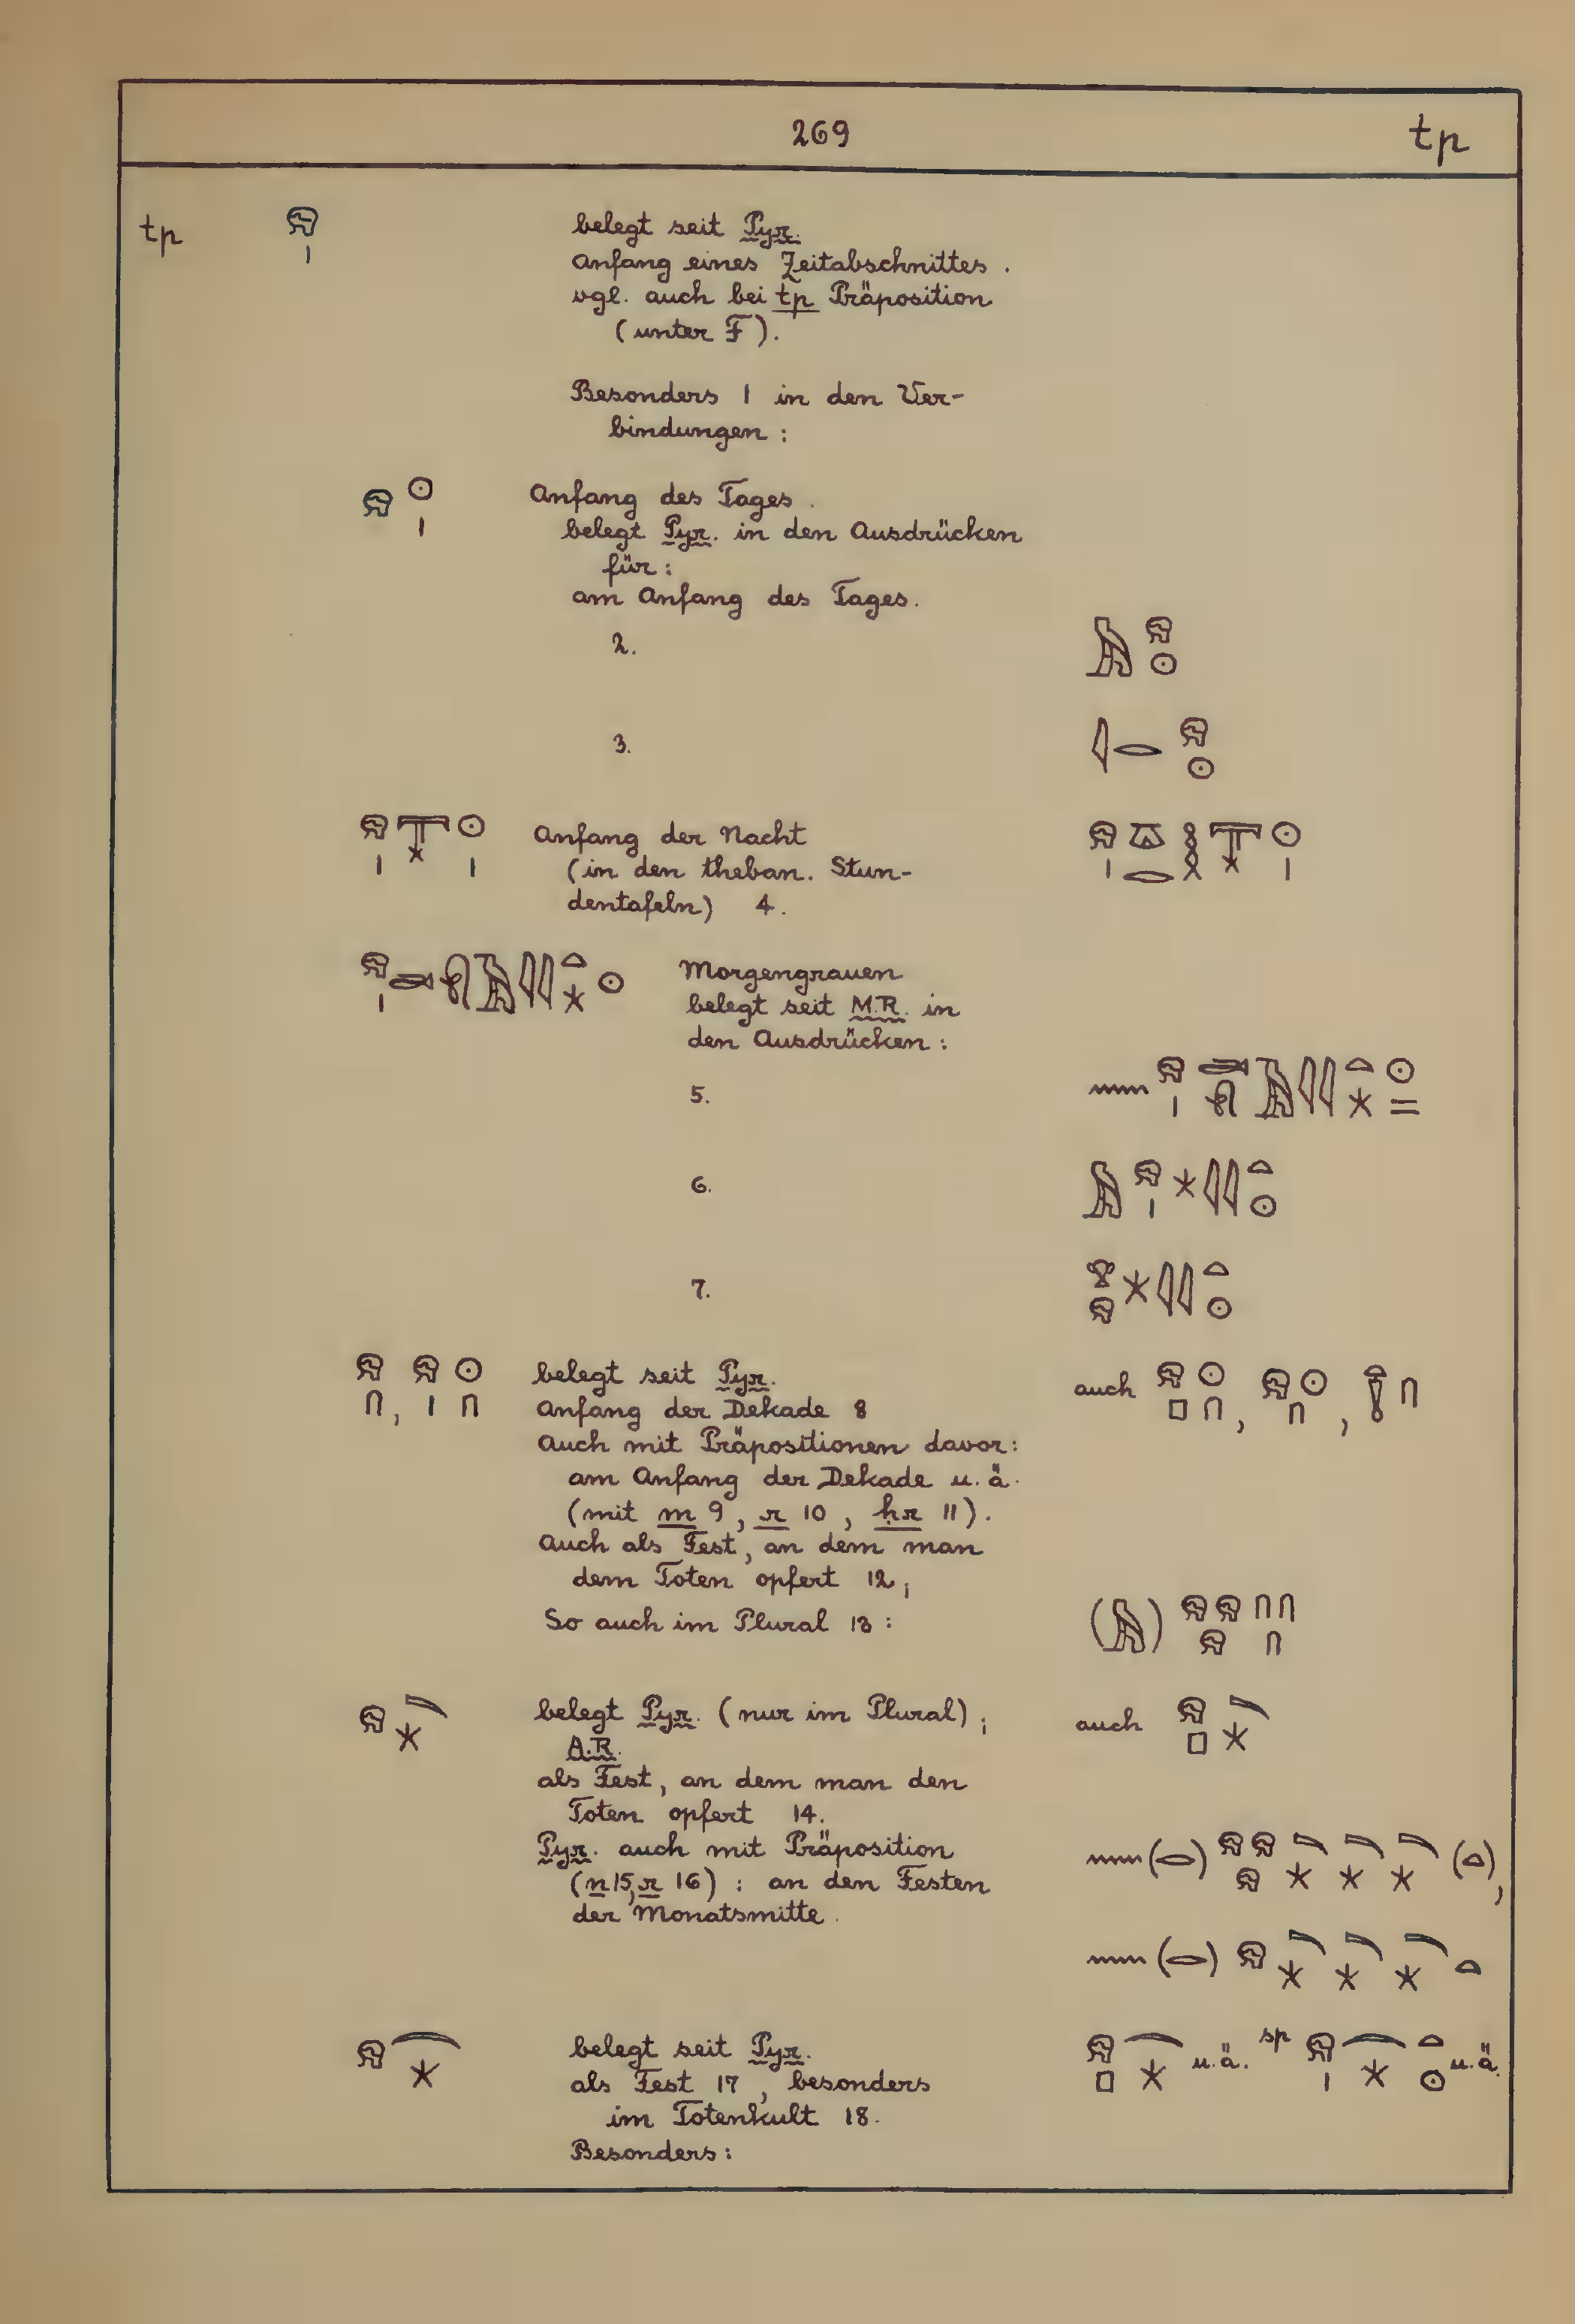 269 tp
tp 𓁶𓏺 belegt seit Pyr.
Anfang eines Zeitabschnittes.
vgl. auch bei tp Präposition
(unter F).
Besonders 1 in den Ver-
bindungen:
𓁶𓇳𓏺 Anfang des Tages.
belegt Pyr. in den Ausdrücken
für:
am Anfang des Tages.
2. 𓅓𓁶𓇳
3. 𓇋𓂋𓁶𓇳
𓁶𓏺𓇰𓇳𓏺 Anfang der Nacht
(in den theban. Stun-
dentafeln) 4.
Morgengrauen
belegt seit M.R. in
den Ausdrücken:
5.
6. 𓅓𓁶𓏺𓇼𓇋𓇋𓏏𓇳
7. 𓁷𓁶𓇼𓇋𓇋𓏏𓇳
𓁶𓎆, 𓁶𓏺𓇳𓎆 belegt seit Pyr. auch 𓁶𓊪𓇳𓎆, 𓁶𓇳𓎆,
Anfang der Dekade 8
Auch mit Präpositionen davor:
am Anfang der Dekade u.ä.
(mit m 9, r 10, ḥr 11).
Auch als Fest, an dem man
dem Toten opfert 12;
So auch im Plural 13: (𓅓) 𓁶𓁶𓁶𓎆𓎆𓎆
belegt Pyr. (nur im Plural); auch
A.R.
als Fest, an dem man den
Toten opfert 14.
Pyr. auch mit Präposition
(n 15, r 16): an den Festen
der Monatsmitte.
𓁶𓇹𓇼 belegt seit Pyr. 𓁶𓊪𓇹𓇼 u.ä. sp 𓁶𓏺𓇹𓇼𓏏𓇳 u.ä.
als Fest 17, besonders
im Totenkult 18.
Besonders: